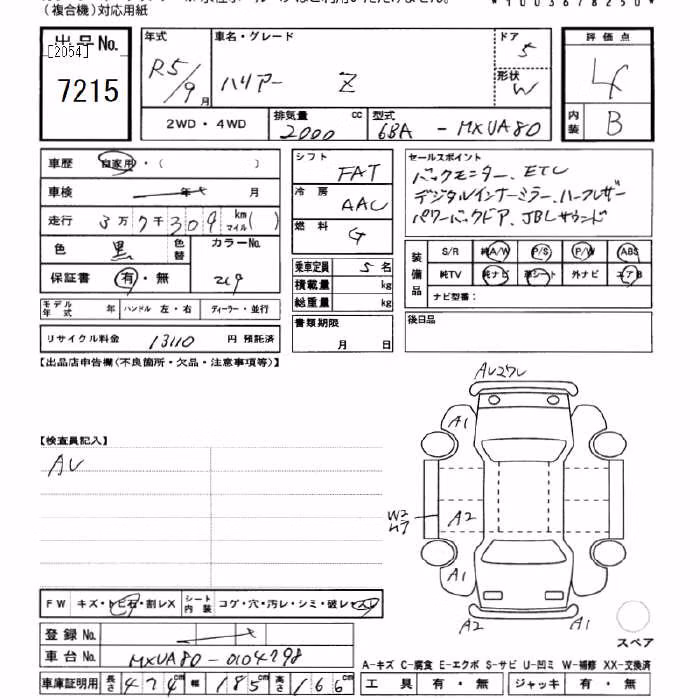 （複合機）対応用紙
*1003678250*
出品No.
[2054]
7215
年式
R5/9月
車名・グレード
ハリアー Z
ドア
5
形状
W
評価点
4
内装
B
2WD・4WD
排気量
2000 cc
型式
6BA - MXUA80
車歴 自家用・( )
車検 年 月
走行 3万7千309 km マイル( )
色 黒 色替
カラーNo.
219
保証書 有・無
モデル年式 年 ハンドル 左・右 ディーラー・並行
リサイクル料金 13110 円 預託済
シフト
FAT
冷房
AAC
燃料
G
乗車定員 5 名
積載量 kg
総重量 kg
書類期限
月 日
セールスポイント
バックモニター、ETC
デジタルインナーミラー、ハーフレザー
パワーバックドア、JBLサウンド
装備品
S/R 純A/W P/S P/W ABS
純TV 純ナビ 革シート 外ナビ エアB
ナビ型番：
後日品
【出品店申告欄(不良箇所・欠品・注意事項等)】
【検査員記入】
AU
A1
A2
W2
A1
A2
A1
スペア
FW キズ・トビ石・割レX シート内装 コゲ・穴・汚レ・シミ・破レ・スレ
登録No.
車台No. MXUA80-0104298
車庫証明用 長さ 474cm 幅 185cm 高さ 166cm
A-キズ C-腐食 E-エクボ S-サビ U-凹ミ W-補修 XX-交換済
工具 有・無 ジャッキ 有・無